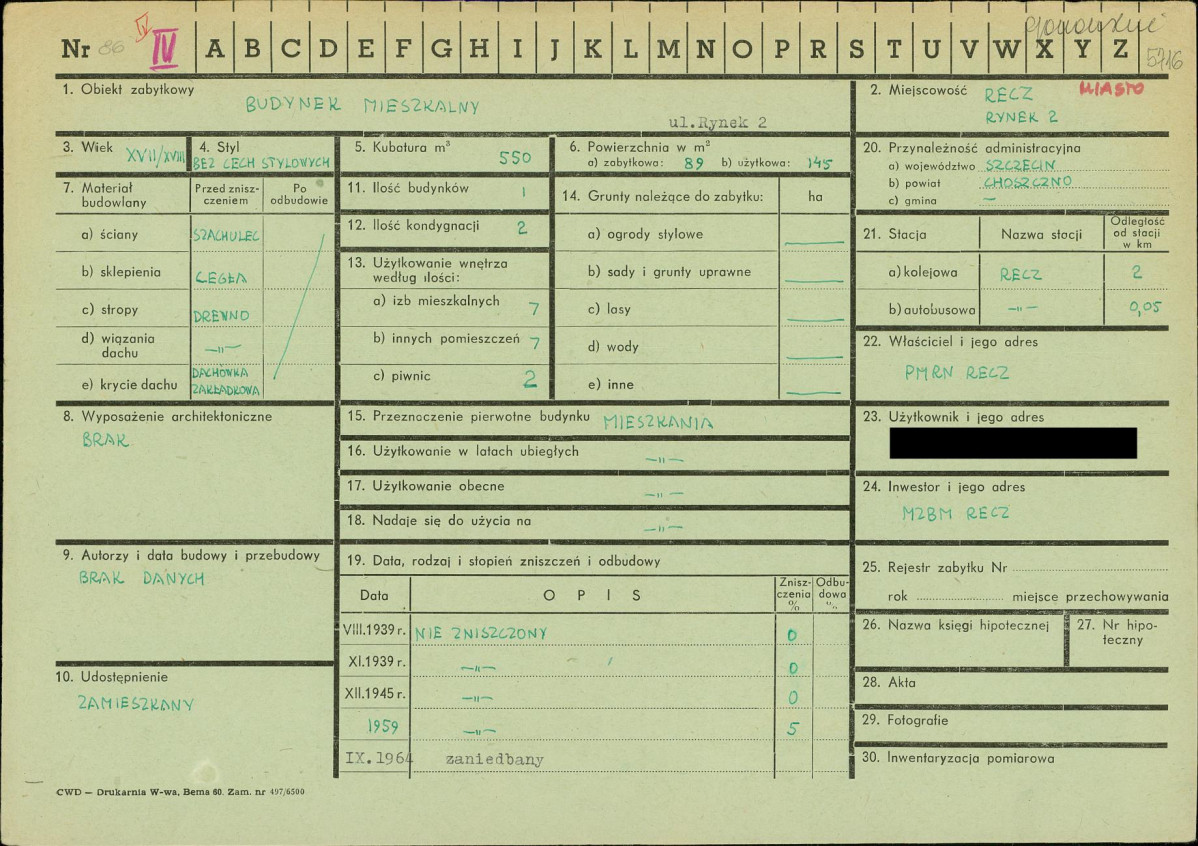 Nr 86 IV A B C D E F G H I J K L M N O P R S T U V W X Y Z 5716
1. Obiekt zabytkowy
BUDYNEK MIESZKALNY
ul.Rynek 2
2. Miejscowość RECZ MIASTO
RYNEK 2
3. Wiek XVII/XVIII
4. Styl
BEZ CECH STYLOWYCH
5. Kubatura m³ 550
6. Powierzchnia w m²
a) zabytkowa: 89 b) użytkowa: 145
20. Przynależność administracyjna
a) województwo SZCZECIN
b) powiat CHOSZCZNO
c) gmina —
7. Materiał budowlany
Przed znisz-
czeniem
Po
odbudowie
a) ściany SZACHULEC
b) sklepienia CEGŁA
c) stropy DREWNO
d) wiązania
dachu —"—
e) krycie dachu DACHÓWKA
ZAKŁADKOWA
11. Ilość budynków 1
12. Ilość kondygnacji 2
13. Użytkowanie wnętrza
według ilości:
a) izb mieszkalnych 7
b) innych pomieszczeń 7
c) piwnic 2
14. Grunty należące do zabytku: ha
a) ogrody stylowe —
b) sady i grunty uprawne —
c) lasy —
d) wody —
e) inne —
21. Stacja Nazwa stacji Odległość
od stacji
w km
a) kolejowa RECZ 2
b) autobusowa —"— 0,05
22. Właściciel i jego adres
PMRN RECZ
8. Wyposażenie architektoniczne
BRAK
15. Przeznoczenie pierwotne budynku MIESZKANIA
16. Użytkowanie w latach ubiegłych —"—
17. Użytkowanie obecne —"—
18. Nadaje się do użycia na —"—
23. Użytkownik i jego adres
24. Inwestor i jego adres
MZBM RECZ
9. Autorzy i data budowy i przebudowy
BRAK DANYCH
19. Data, rodzaj i stopień zniszczeń i odbudowy
Data O P I S Znisz-
czenia
%
Odbu-
dowa
%
VIII.1939 r. NIE ZNISZCZONY 0
XI.1939 r. —"— 0
XII.1945 r. —"— 0
1959 —"— 5
IX.1964 zaniedbany
25. Rejestr zabytku Nr
rok miejsce przechowywania
26. Nazwa księgi hipotecznej
27. Nr hipo-
teczny
10. Udostępnienie
ZAMIESZKANY
28. Akta
29. Fotografie
30. Inwentaryzacja pomiarowa
CWD — Drukarnia W-wa, Bema 60. Zam. nr 497/6500